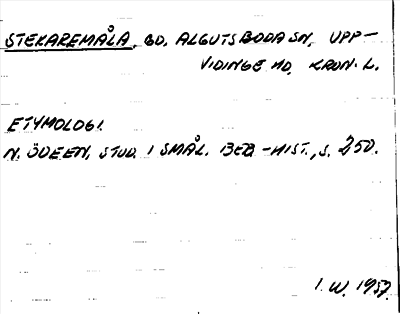 STEKAREMÅLA, GD, ALGUTSBODA SN, UPP-
VIDINGE HD, KRON. L.
ETYMOLOGI.
N. ÖDEEN, STUD. I SMÅL. BEB.-HIST., S. 250.
I. W. 1957.